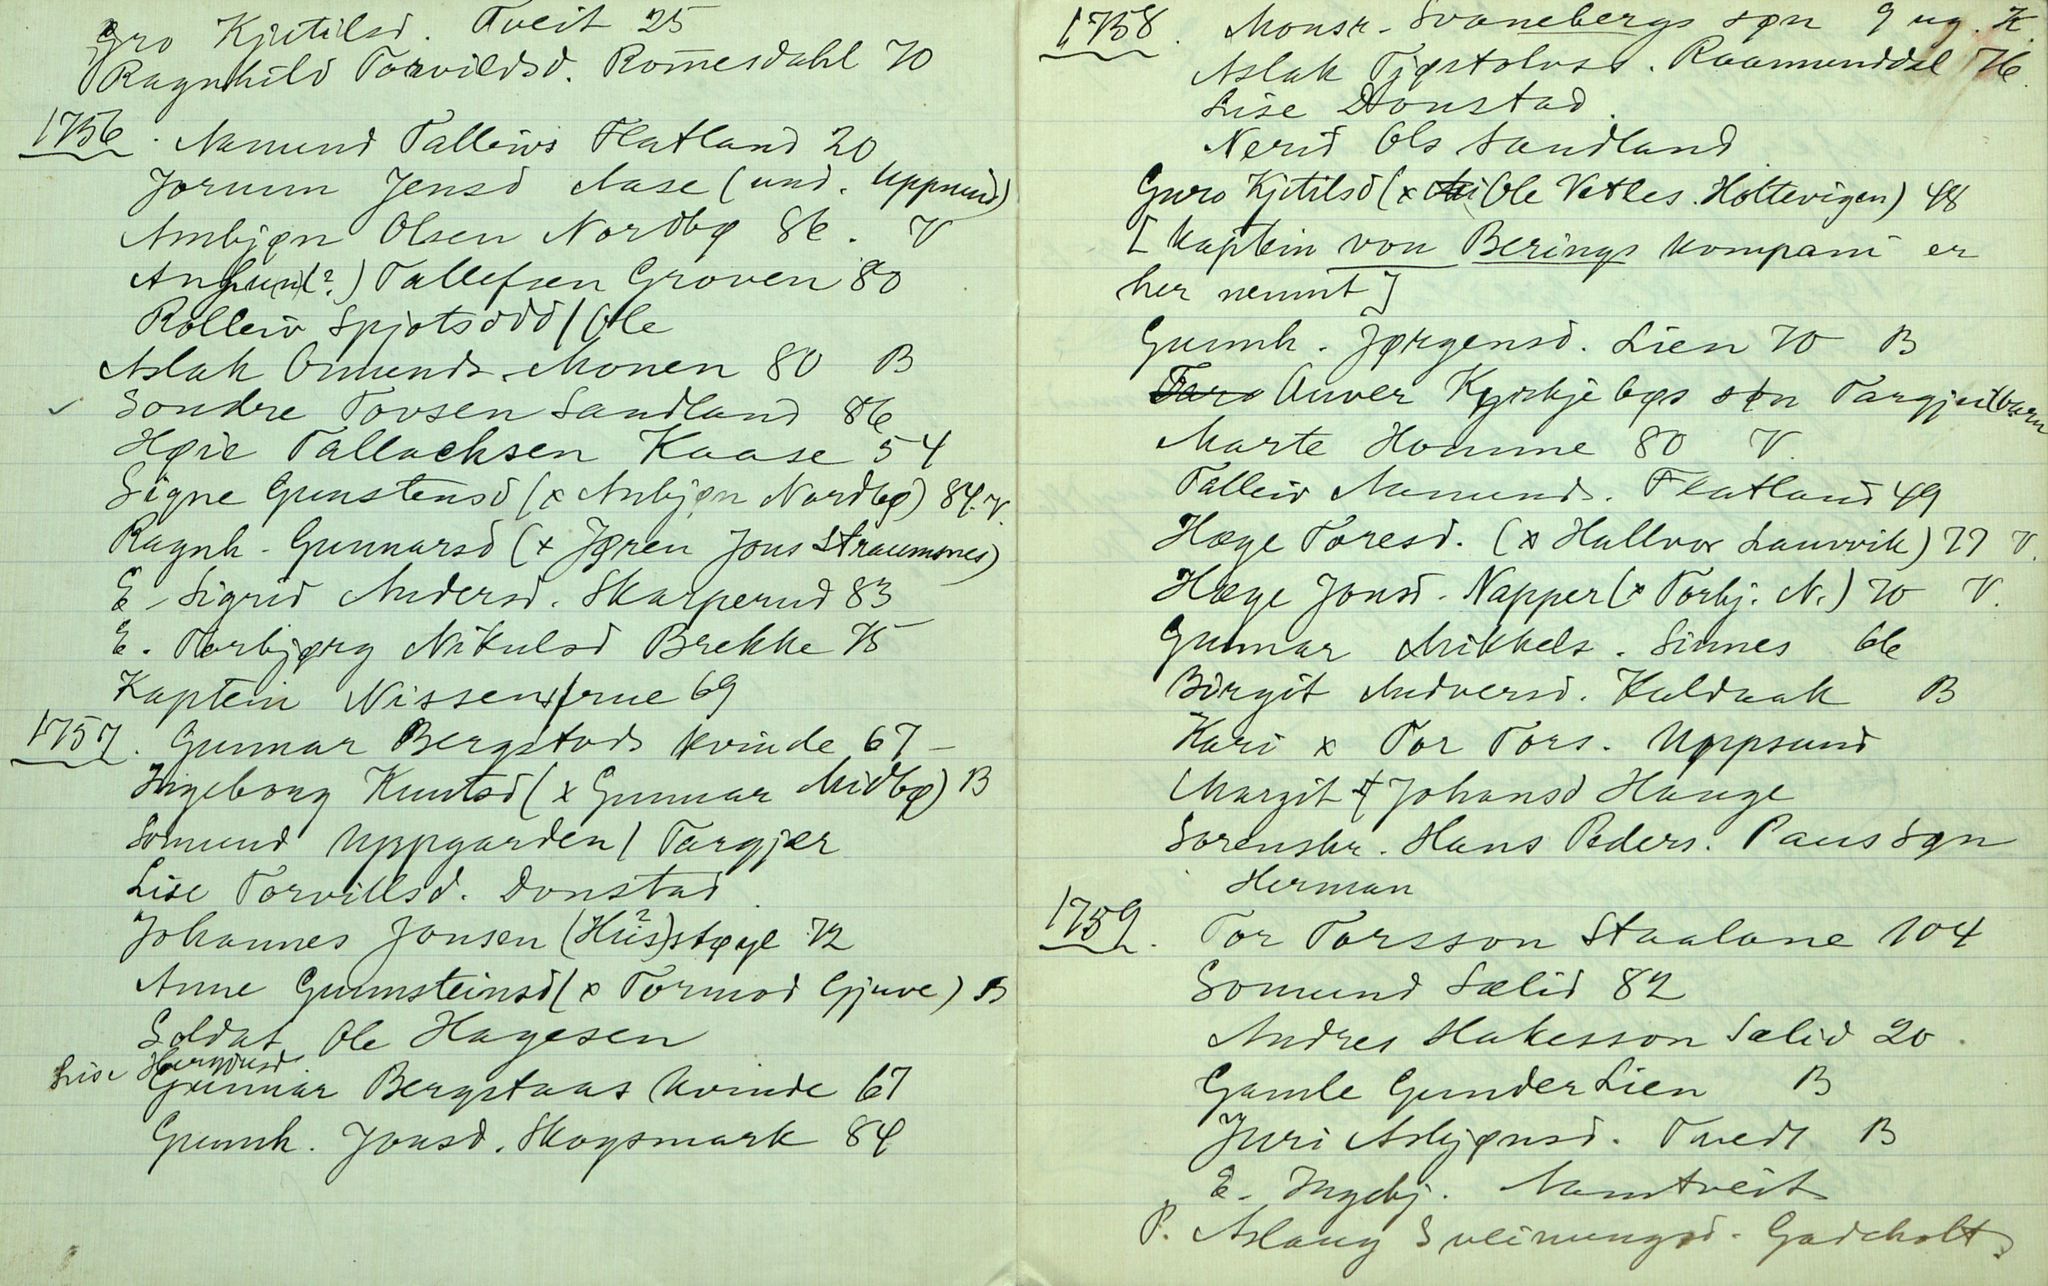 Gro Kjetilsd. Tveit 25
Ragnhild Torvildsd. Romesdahl 70
1756. Aamund Talleivs Flatland 20
Jorunn Jensd Aase (und. Uppsund)
Ambjøn Olsen Nordbø 86. V
(?) Tallefsen Groven 80
Rolleiv Spjotsodd / Ole
Aslak Omunds. Monen 80 B
✓ Sondre Tovsen Sandland 86
Høie Tallachsen Kaase 54
Signe Gunstensd (x Anbjøn Nordbø) 84. V.
Ragnh. Gunnarsd (x Jøren Jons Straumsnes)
E. Sigrid Andersd. Skarperud 83
E. Torbjørg Nikulsd Brekke 75
Kaptein Nissens frue 69
1757. Gunnar Bergstads kvinde 67 –
Ingeborg Knutsd (x Gunnar Midbø) B
Somund Uppgarden / Targjær
Lise Torvillsd. Donstad
Johannes Jonsen (Hus?)støyl 72
Anne Gunnsteinsd (x Tormod Gjuve) B
Soldat Ole Hagesen
Lise
Gunnar Bergstaas kvinde 67
Gunnh. Jonsd. Skogsmark 84
1758. Monsr. Svanebergs søn 9 ug. K.
Aslak Tjøstolvsd. Raamunddal 76
Lise Donstad.
Nerid Ols Sandland
Guro Kjetilsd (x Ole Vetles. Holtevigen) 48
[Kaptein von Berings kompani er
her nemnt]
Gunnh. Jørgensd. Lien 70 B
Anver Kyrkjebøs søn Targjeit barn
Marte Homme 80 V.
Talleiv Aamunds. Flatland 49
Hæge Toresd. (x Hallvor Lauvvik) 77 V.
Hæge Jonsd. Napper (x Torbj. N.) 70 V.
Gunnar Mikkels. Sinnes 66
Birgit Andversd. Kaldaak B
Kari x Tor Tors. Uppsund
Margit Johansd Hauge
Sorenskr. Hans Peders. Paus søn
Herman
1759. Tor Torsson Staalane 104
Somund Sælid 82
Andres Hakesson Sælid 20.
Gamle Gunder Lien B
Juri Asbjønsd. Tvedt B
E. Ingebj. Mandtveit
P. Aslaug Sveinungsd. Gardeholt